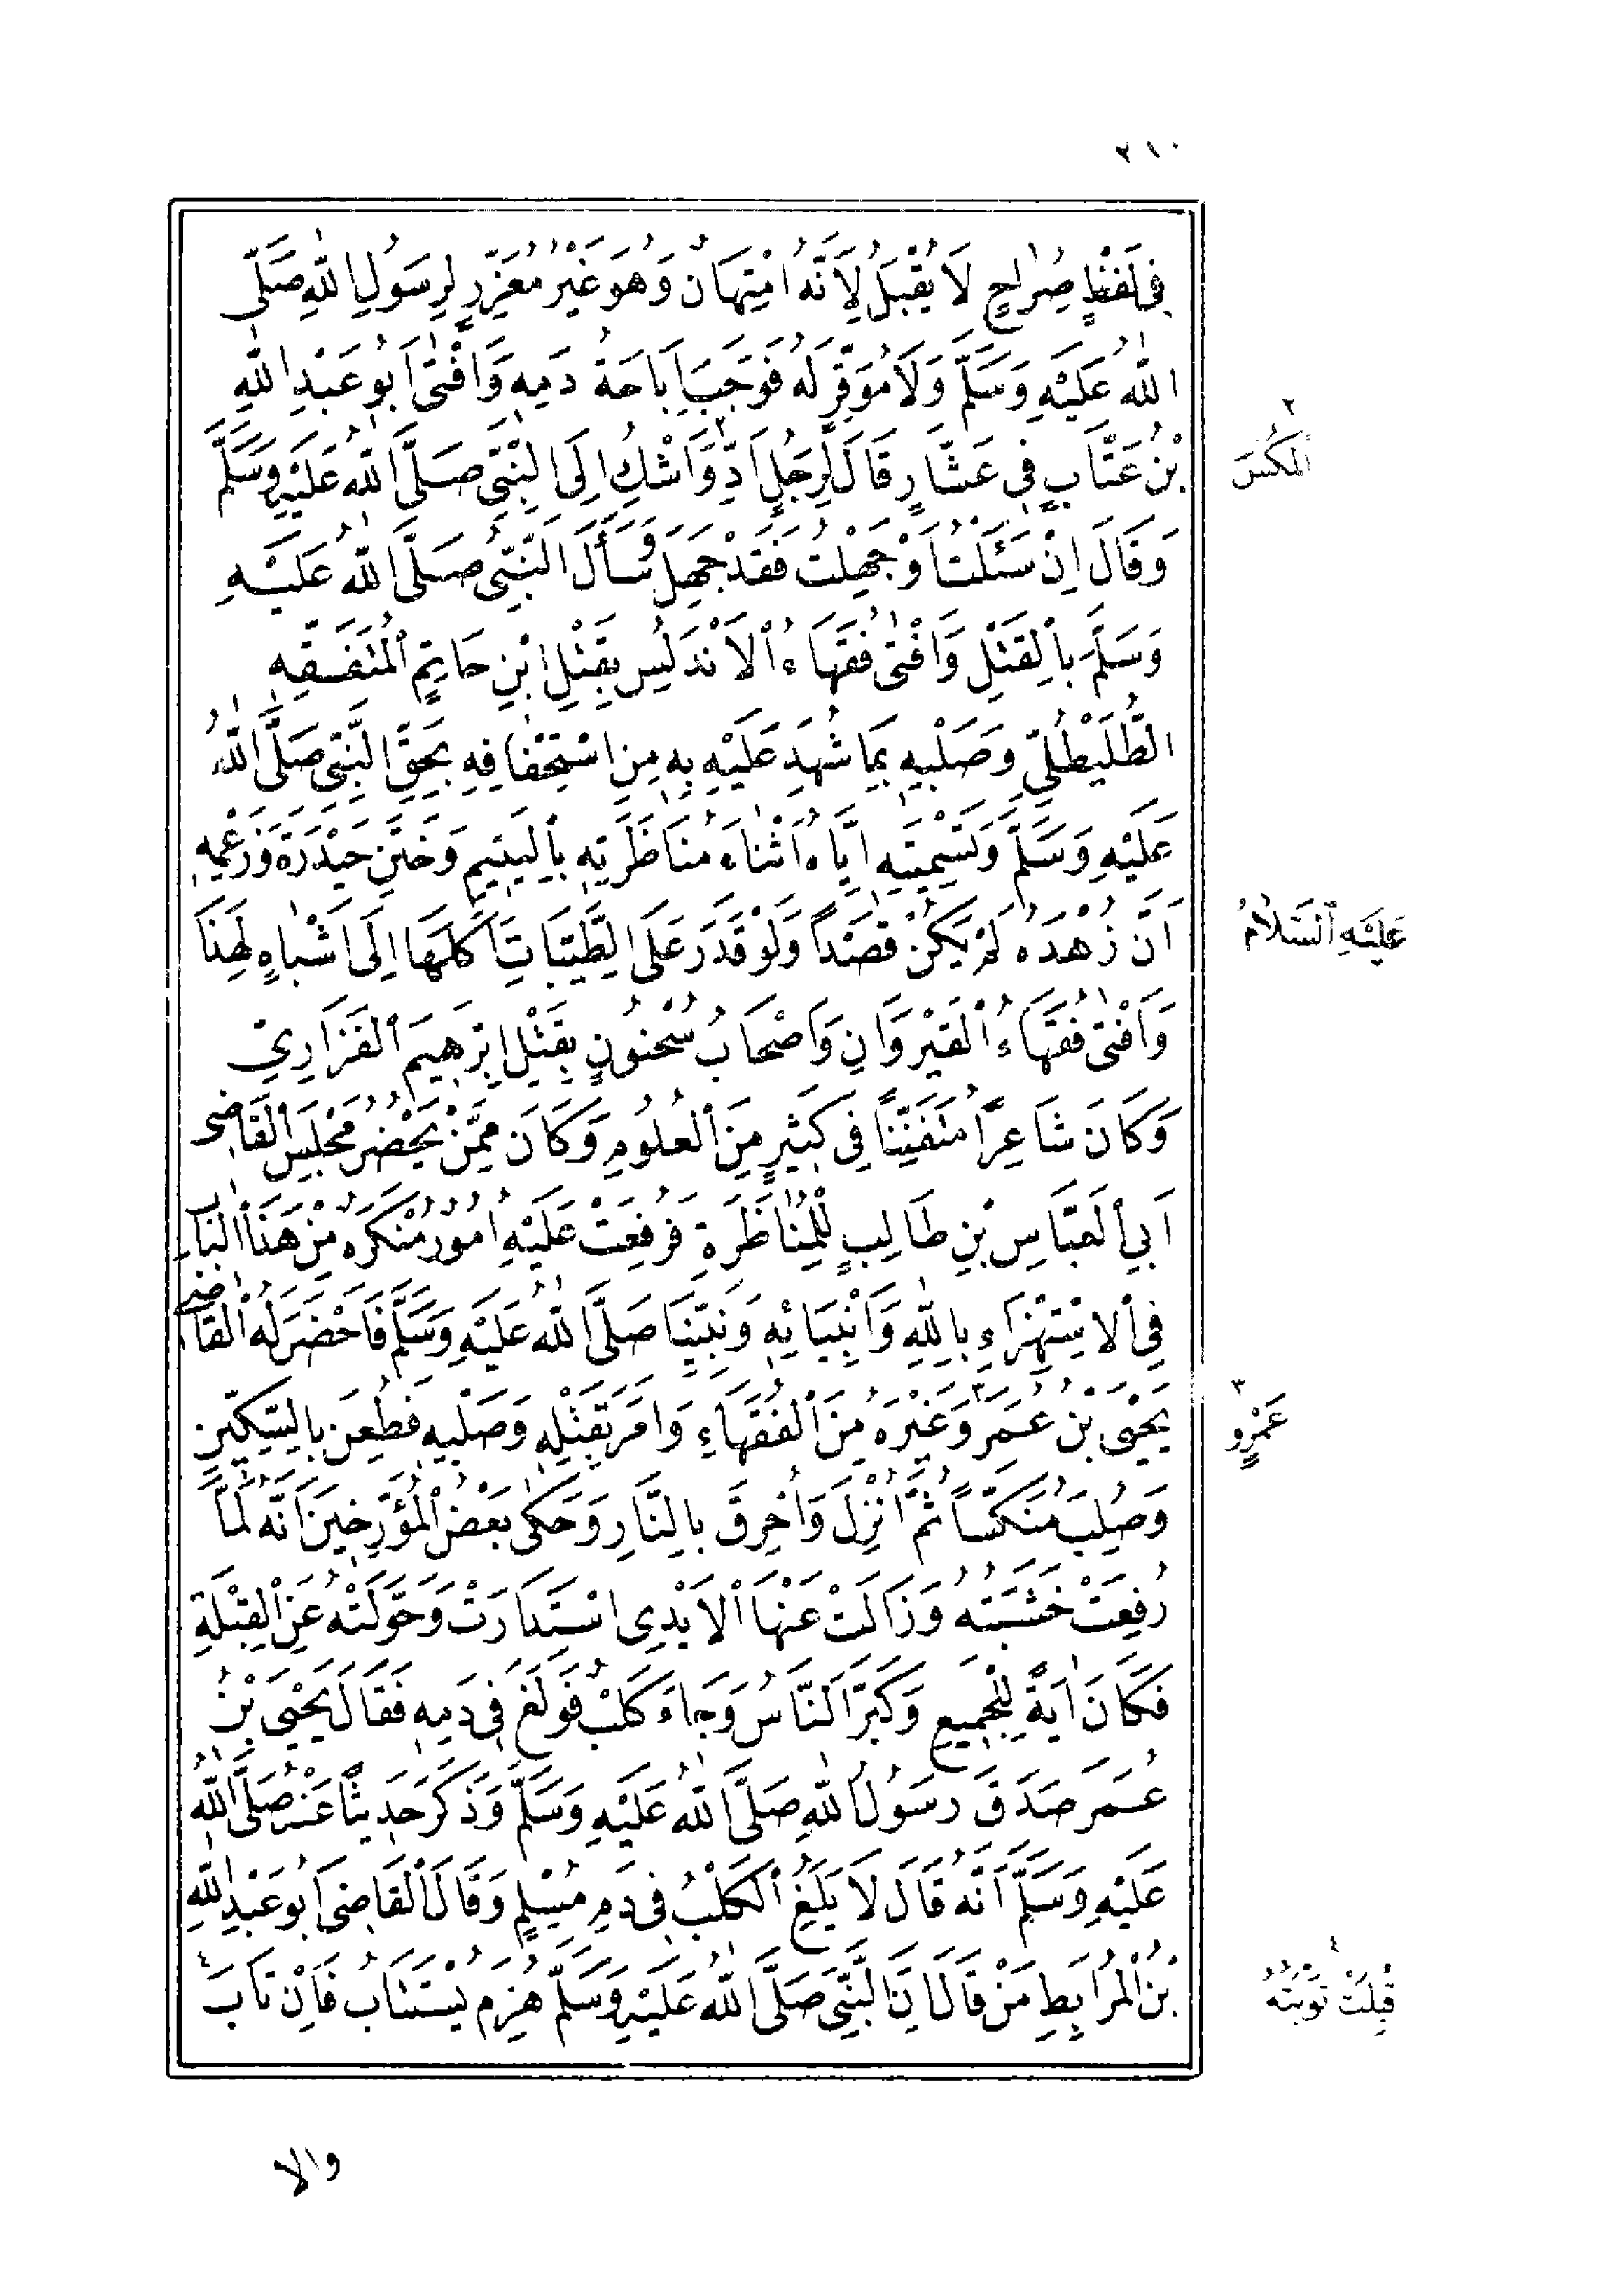 ٢١٠
فِي لَفْظٍ صُرَاحٍ لَا يُقْبَلُ لِأَنَّهُ امْتِهَانٌ وَهُوَ غَيْرُ مُعَزِّرٍ لِرَسُولِ اللّٰهِ صَلَّى
اللّٰهُ عَلَيْهِ وَسَلَّمَ وَلَا مُوَقِّرٍ لَهُ فَوَجَبَ إِبَاحَةُ دَمِهِ وَأَفْتَى أَبُو عَبْدِ اللّٰهِ
بْنُ عَتَّابٍ فِي عَشَّارٍ قَالَ لِرَجُلٍ أَدِّ ٢ وَاشْكُ إِلَى النَّبِيِّ صَلَّى اللّٰهُ عَلَيْهِ وَسَلَّمَ
٢ الْمَكْسَ
وَقَالَ إِنْ سَئَلْتُ أَوْ جَهِلْتُ فَقَدْ جَهِلَ وَسَأَلَ النَّبِيُّ صَلَّى اللّٰهُ عَلَيْهِ
وَسَلَّمَ بِالْقَتْلِ وَأَفْتَى فُقَهَاءُ الْأَنْدَلُسِ بِقَتْلِ ابْنِ حَاتِمٍ الْمُتَفَقِّهِ
الطُّلَيْطُلِيِّ وَصَلْبِهِ بِمَا شُهِدَ عَلَيْهِ بِهِ مِنِ اسْتِخْفَافِهِ بِحَقِّ النَّبِيِّ صَلَّى اللّٰهُ
عَلَيْهِ وَسَلَّمَ وَتَسْمِيَتِهِ إِيَّاهُ أَثْنَاءَ مُنَاظَرَتِهِ بِالْيَتِيمِ وَخَتَنِ حَيْدَرَةَ وَزَعْمِهِ
أَنَّ زُهْدَهُ لَمْ يَكُنْ قَصْدًا وَلَوْ قَدَرَ عَلَى الطَّيِّبَاتِ أَكَلَهَا إِلَى أَشْبَاهٍ لِهٰذَا
عَلَيْهِ السَّلَامُ
وَأَفْتَى فُقَهَاءُ الْقَيْرَوَانِ وَأَصْحَابُ سُحْنُونٍ بِقَتْلِ إِبْرٰهِيمَ الْفَزَارِيِّ
وَكَانَ شَاعِرًا مُتَفَنِّنًا فِي كَثِيرٍ مِنَ الْعُلُومِ وَكَانَ مِمَّنْ يَحْضُرُ مَجْلِسَ الْقَاضِي
أَبِي الْعَبَّاسِ بْنِ طَالِبٍ لِلْمُنَاظَرَةِ فَرُفِعَتْ عَلَيْهِ أُمُورٌ مُنْكَرَةٌ مِنْ هٰذَا الْبَابِ
فِي الِاسْتِهْزَاءِ بِاللّٰهِ وَأَنْبِيَائِهِ وَنَبِيِّنَا صَلَّى اللّٰهُ عَلَيْهِ وَسَلَّمَ فَأَحْضَرَ لَهُ الْقَاضِي
يَحْيَى بْنَ عُمَرَ ٣ وَغَيْرَهُ مِنَ الْفُقَهَاءِ وَأَمَرَ بِقَتْلِهِ وَصَلْبِهِ فَطُعِنَ بِالسِّكِّينِ
٣ عَمْرٍو
وَصُلِبَ مُنَكَّسًا ثُمَّ أُنْزِلَ وَأُحْرِقَ بِالنَّارِ وَحَكَى بَعْضُ الْمُؤَرِّخِينَ أَنَّهُ لَمَّا
رُفِعَتْ خَشَبَتُهُ وَزَالَتْ عَنْهَا الْأَيْدِي اسْتَدَارَتْ وَحَوَّلَتْهُ عَنِ الْقِبْلَةِ
فَكَانَ آيَةً لِلْجَمِيعِ وَكَبَّرَ النَّاسُ وَجَاءَ كَلْبٌ فَوَلَغَ فِي دَمِهِ فَقَالَ يَحْيَى بْنُ
عُمَرَ صَدَقَ رَسُولُ اللّٰهِ صَلَّى اللّٰهُ عَلَيْهِ وَسَلَّمَ وَذَكَرَ حَدِيثًا عَنْهُ صَلَّى اللّٰهُ
عَلَيْهِ وَسَلَّمَ أَنَّهُ قَالَ لَا يَلَغُ الْكَلْبُ فِي دَمِ مُسْلِمٍ وَقَالَ الْقَاضِي أَبُو عَبْدِ اللّٰهِ
بْنُ الْمُرَابِطِ مَنْ قَالَ إِنَّ النَّبِيَّ صَلَّى اللّٰهُ عَلَيْهِ وَسَلَّمَ هُزِمَ يُسْتَتَابُ فَإِنْ تَابَ ٤
٤ قُبِلَتْ تَوْبَتُهُ
والا